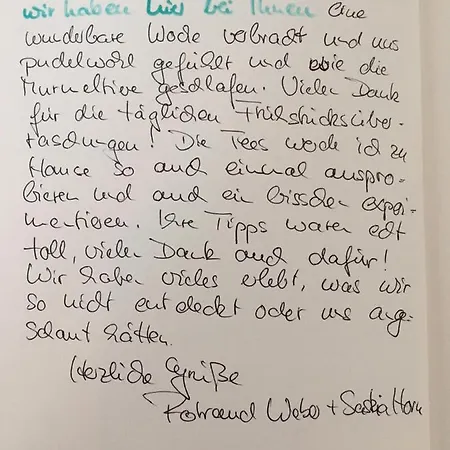 wir haben hier bei Ihnen eine
wunderbare Woche verbracht und uns
pudelwohl gefühlt und wie die
Murmeltiere geschlafen. Vielen Dank
für die täglichen Frühstücksüber-
raschungen! Die Tees werde ich zu
Hause so auch einmal auspro-
bieren und auch ein bisschen experi-
mentieren. Ihre Tipps waren echt
toll, vielen Dank auch dafür!
Wir haben vieles erlebt, was wir
so nicht entdeckt oder uns ange-
schaut hätten.
Herzliche Grüße
Weber + Saskia Horn